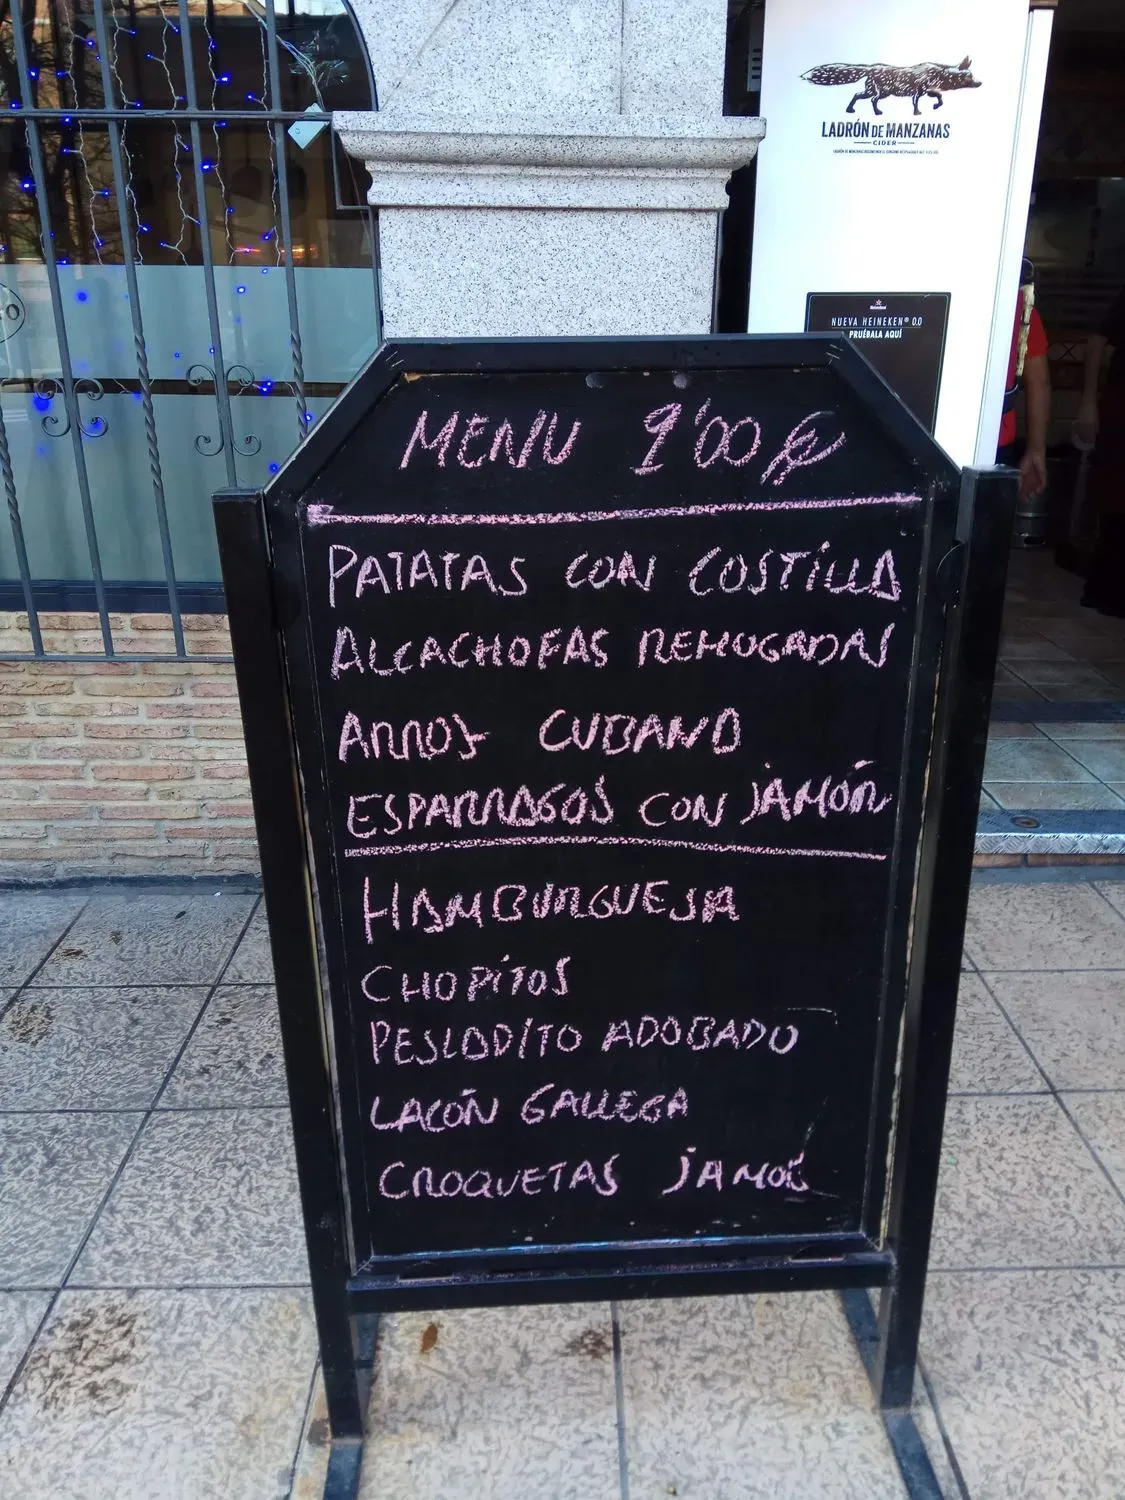 LADRÓN DE MANZANAS
CIDER
NUEVA HEINEKEN® 0.0
PRUÉBALA AQUÍ
MENU 9'00 €
PATATAS CON COSTILLA
ALCACHOFAS REHOGADAS
ARROZ CUBANO
ESPARRAGOS CON JAMÓN
HAMBURGUESA
CHOPITOS
PESCADITO ADOBADO
LACÓN GALLEGA
CROQUETAS JAMON